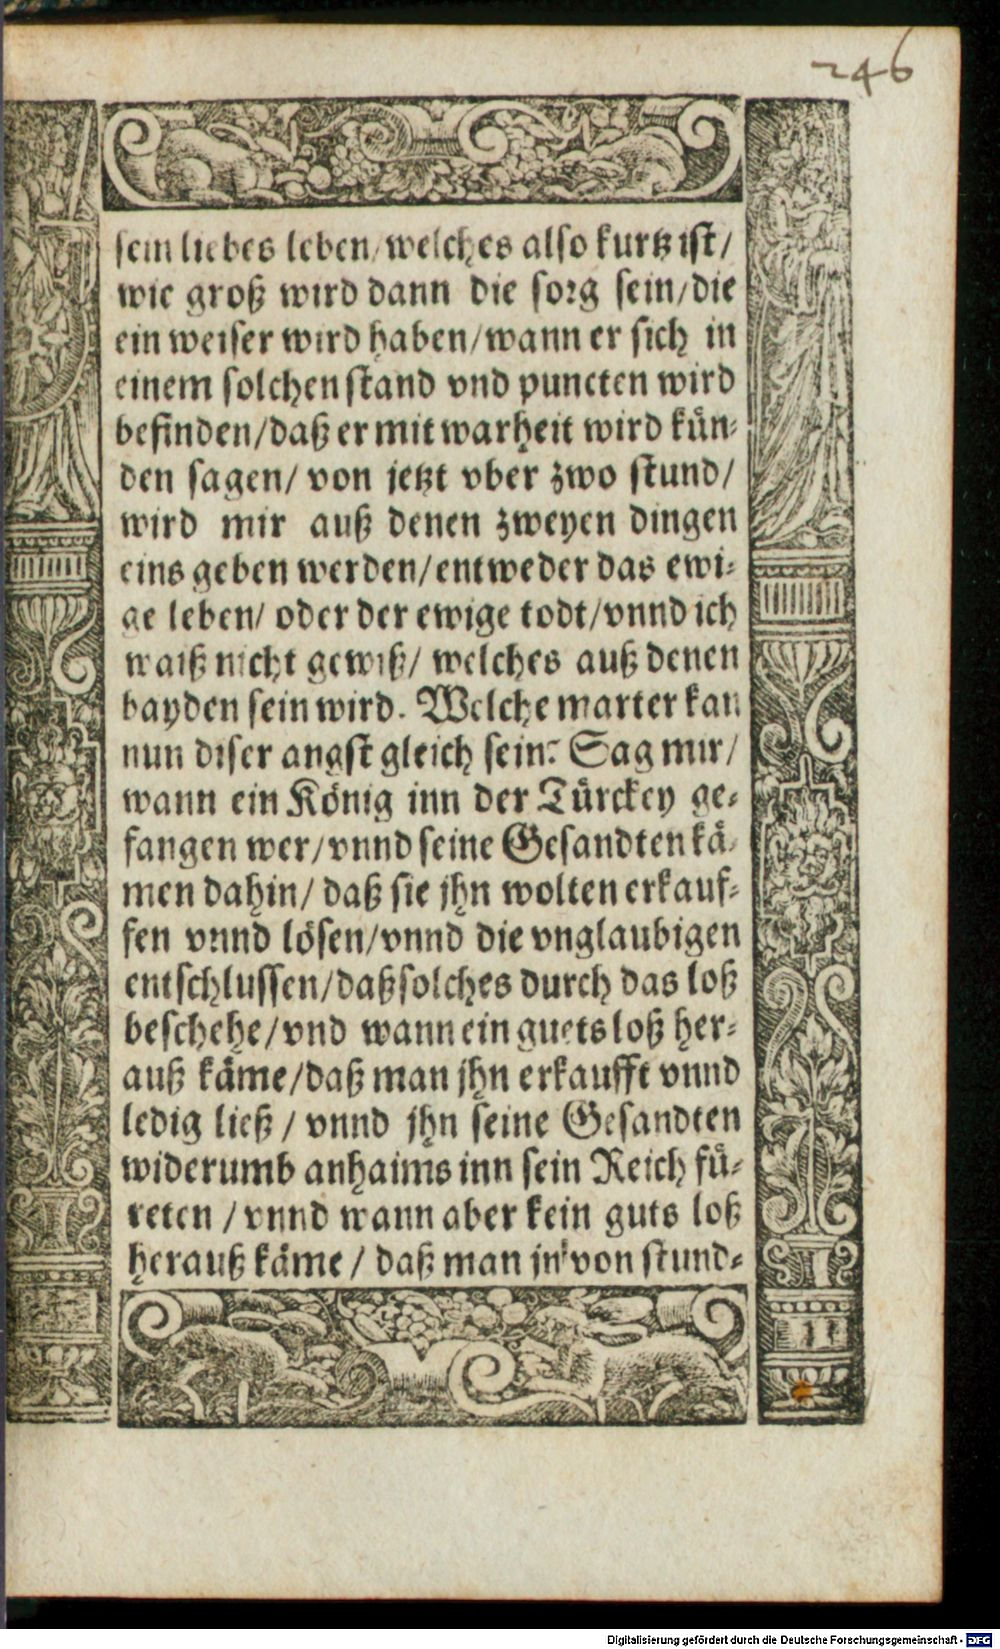 246
sein liebes leben/welches also kurtz ist/
wie groß wird dann die sorg sein/die
ein weiser wird haben/wann er sich in
einem solchen stand vnd puncten wird
befinden/daß er mit warheit wird kün-
den sagen/ von jetzt vber zwo stund/
wird mir auß denen zweyen dingen
eins geben werden/entweder das ewi-
ge leben/ oder der ewige todt/vnnd ich
waiß nicht gewiß/ welches auß denen
bayden sein wird. Welche marter kan
nun diser angst gleich sein? Sag mir/
wann ein König inn der Türckey ge-
fangen wer/vnnd seine Gesandten kä-
men dahin/ daß sie jhn wolten erkauf-
fen vnnd lösen/vnnd die vnglaubigen
entschlussen/daß solches durch das loß
beschehe/vnd wann ein guets loß her-
auß käme/daß man jhn erkaufft vnnd
ledig ließ / vnnd jhn seine Gesandten
widerumb anhaims inn sein Reich fü-
reten / vnnd wann aber kein guts loß
herauß käme / daß man jn von stund-
Digitalisierung gefördert durch die Deutsche Forschungsgemeinschaft - DFG